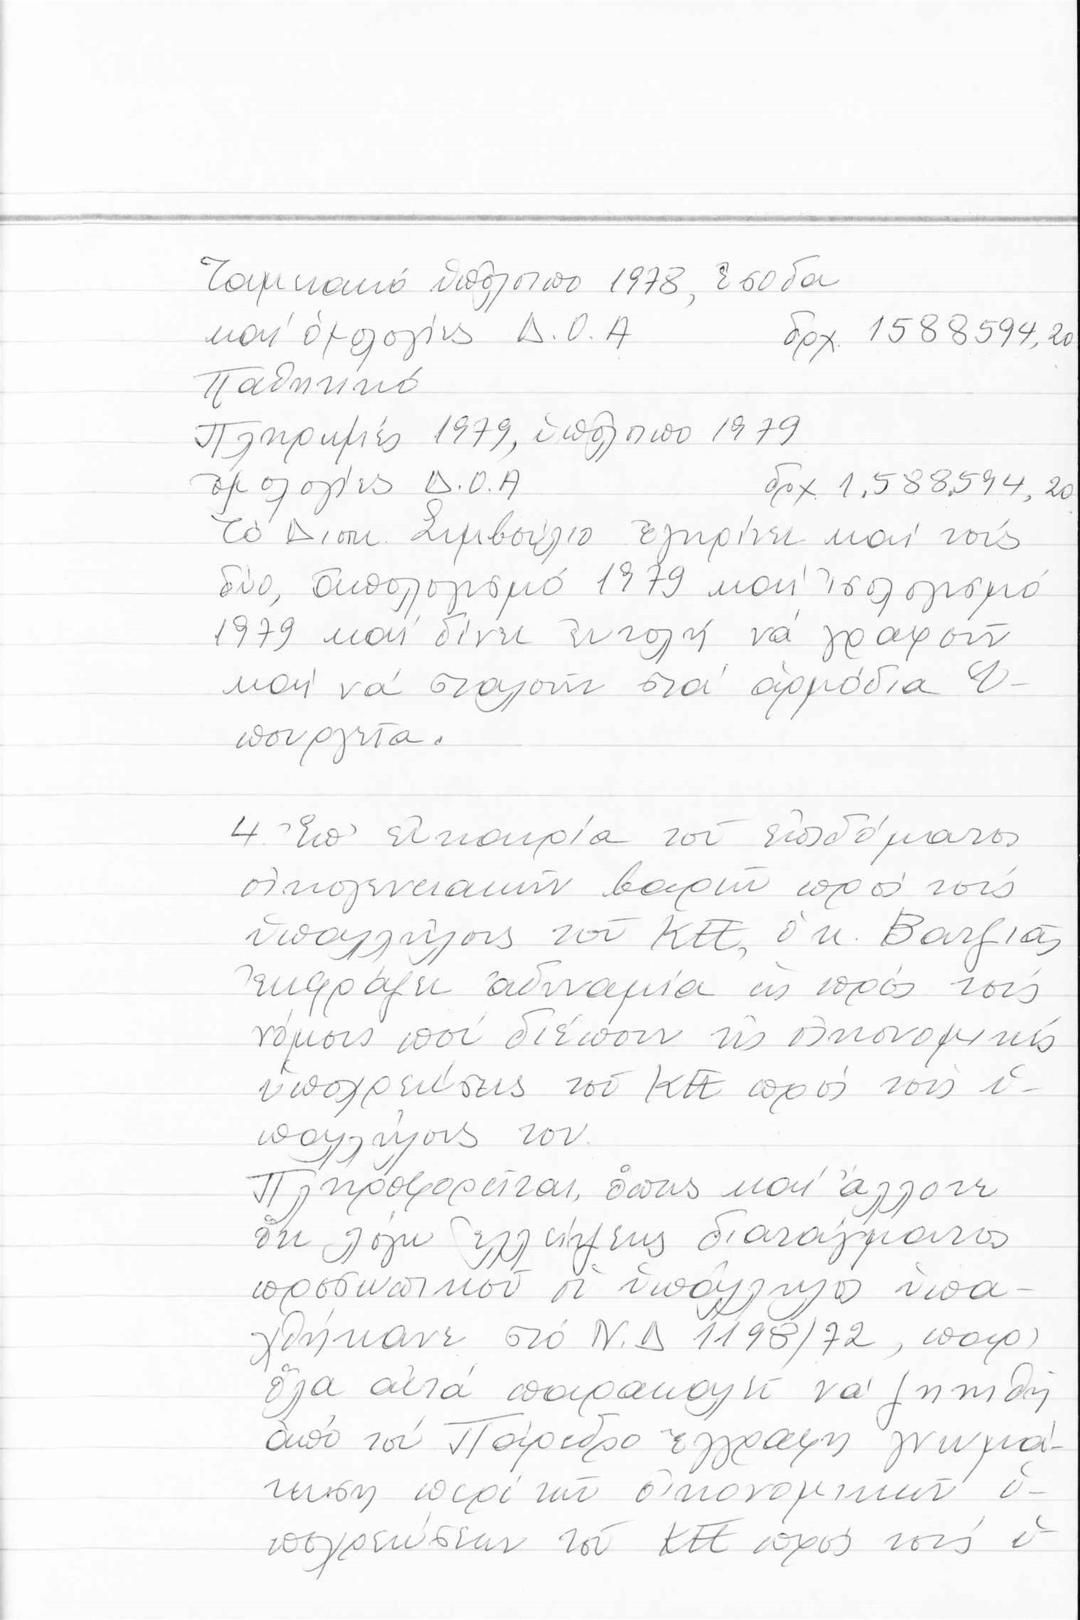 Ταμειακό ὑπόλοιπο 1978, ἔσοδα
καί ὁμολογίες Δ.Ο.Α δρχ. 1588594,20
Παθητικό
Πληρωμές 1979, ὑπόλοιπο 1979
ὁμολογίες Δ.Ο.Α δρχ. 1.588.594,20
Τό Διοικ. Συμβούλιο ἐγκρίνει καί τούς
δύο, ἀπολογισμό 1979 καί ἰσολογισμό
1979 καί δίνει ἐντολή νά γραφοῦν
καί νά σταλοῦν στά ἁρμόδια Ὑ-
πουργεῖα.
4. Ἐπ' εὐκαιρία τοῦ ἐπιδόματος
οἰκογενειακῶν βαρῶν πρός τούς
ὑπαλλήλους τοῦ ΚΠ, ὁ κ. Βατζιᾶς
ἐκφράζει ἀδυναμία ὡς πρός τούς
νόμους πού διέπουν τίς οἰκονομικές
ὑποχρεώσεις τοῦ ΚΠ πρός τούς ὑ-
παλλήλους του.
Πληροφορεῖται, ὅπως καί ἄλλοτε
ὅτι λόγω ἐλλείψεως διατάγματος
προσωπικοῦ οἱ ὑπάλληλοι ὑπα-
χθήκανε στό Ν.Δ 1198/72, παρ'
ὅλα αὐτά παρακαλεῖ νά ζητηθῆ
ἀπό τό Πάρεδρο ἔγγραφη γνωμά-
τευση περί τῶν οἰκονομικῶν ὑ-
ποχρεώσεων τοῦ ΚΠ πρός τούς ὑ-